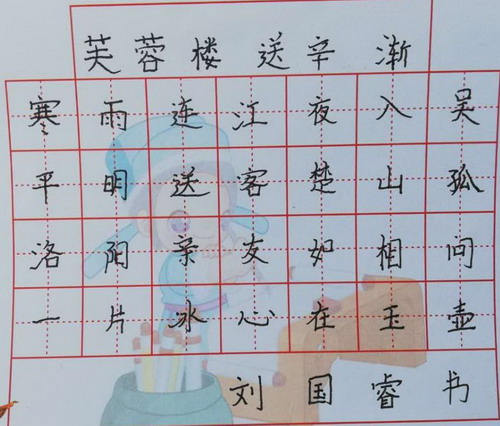 芙蓉楼 送辛渐
寒雨连江夜入吴
平明送客楚山孤
洛阳亲友如相问
一片冰心在玉壶
刘国睿书